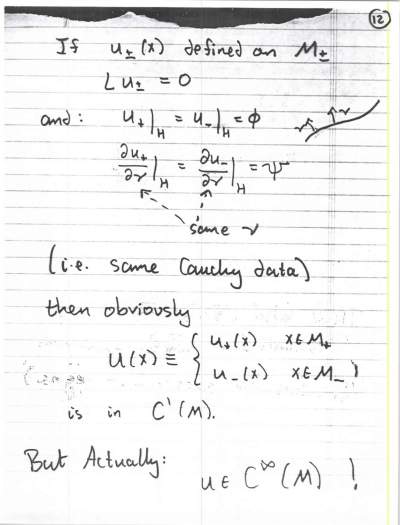 12
If u±(x) defined on M±
L u± = 0
and: u₊|_H = u₋|_H = φ
∂u₊/∂ν|_H = ∂u₋/∂ν|_H = ψ
ν ν
same ν
(i.e. same Cauchy data)
then obviously
u(x) ≡ { u₊(x) x∈M₊
u₋(x) x∈M₋
is in C¹(M).
But Actually:
u ∈ C^∞(M) !